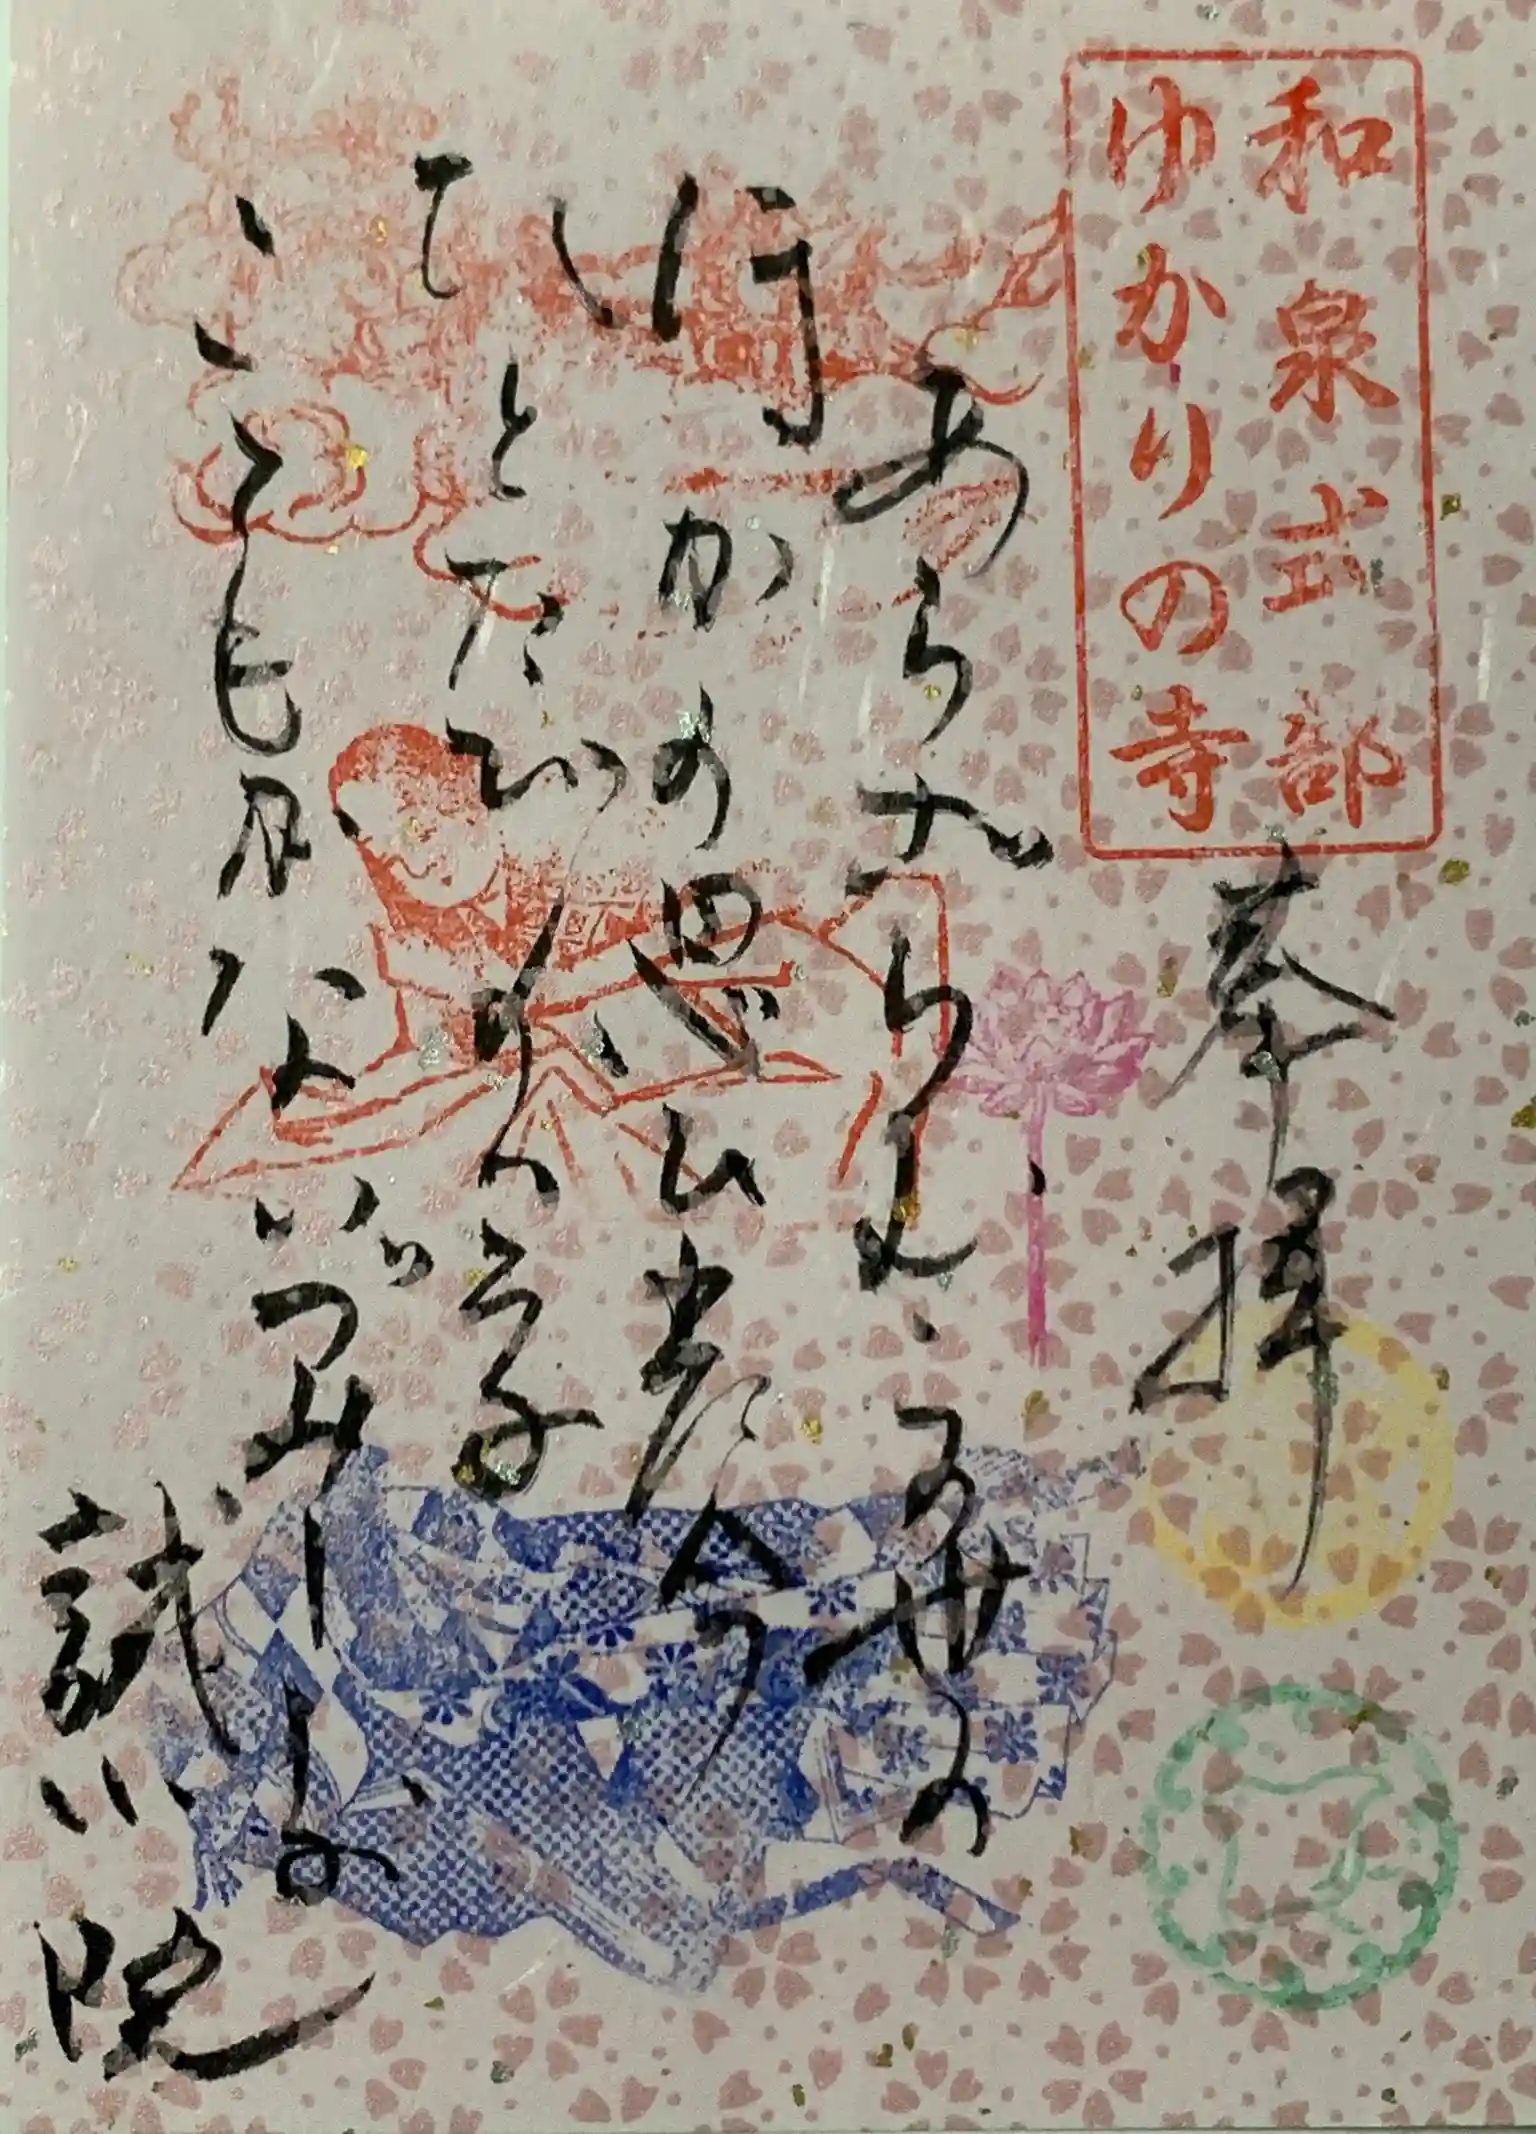 和泉式部
ゆかりの寺
奉拝
あらざらむこの世の
ほかの思ひ出に今
ひとたびの
こともがな
いづみしきぶ
誠心院